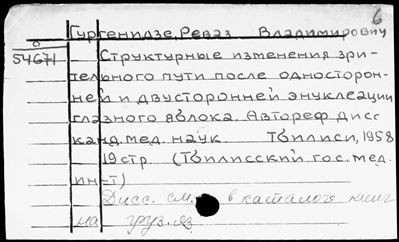 6
Гургенидзе, Реваз Владимирович
54671
Структурные изменения зри-
тельного пути после односторон-
ней и двусторонней энуклеации
глазного яблока. Автореф дисс
канд. мед. наук. Тбилиси, 1958
19 стр (Тбилисский гос. мед.
ин-т)
Дисс. см. в каталоге книг
на груз. яз